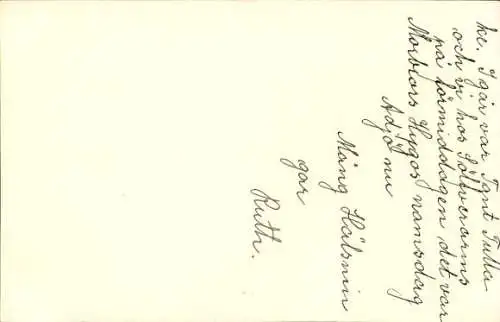 ke. I går var Tant Tulla
och vi hos Sölverarms
på förmiddagen det var
Morbrors Hugos namsdag
Adjö nu
Mång Hälsnin
gar
Ruth.